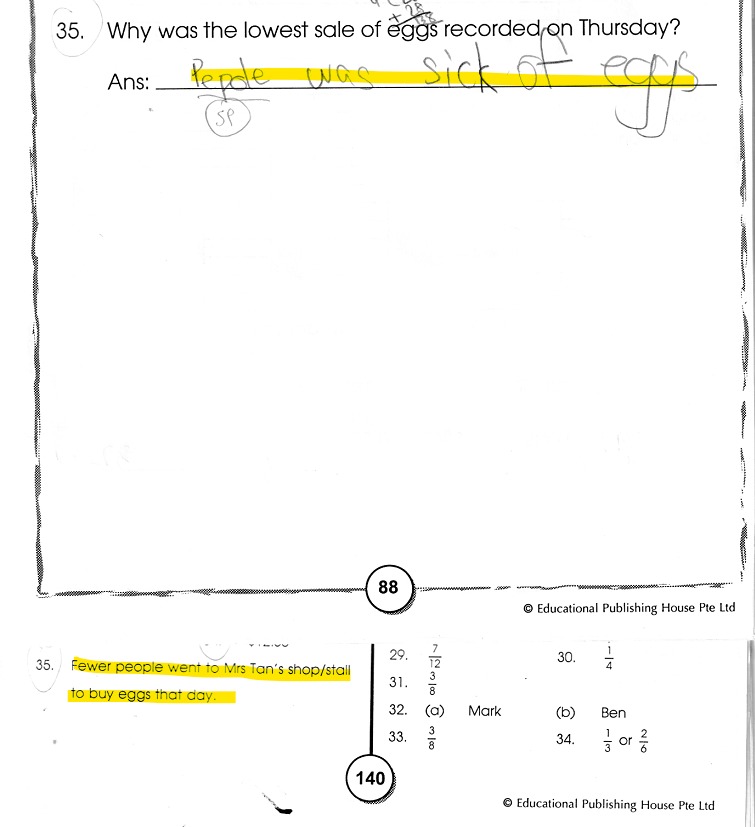 35. Why was the lowest sale of eggs recorded on Thursday?
Ans: Pepole was sick of eggs
SP
88
© Educational Publishing House Pte Ltd
35. Fewer people went to Mrs Tan's shop/stall
to buy eggs that day.
29. 7/12
30. 1/4
31. 3/8
32. (a) Mark (b) Ben
33. 3/8
34. 1/3 or 2/6
140
© Educational Publishing House Pte Ltd